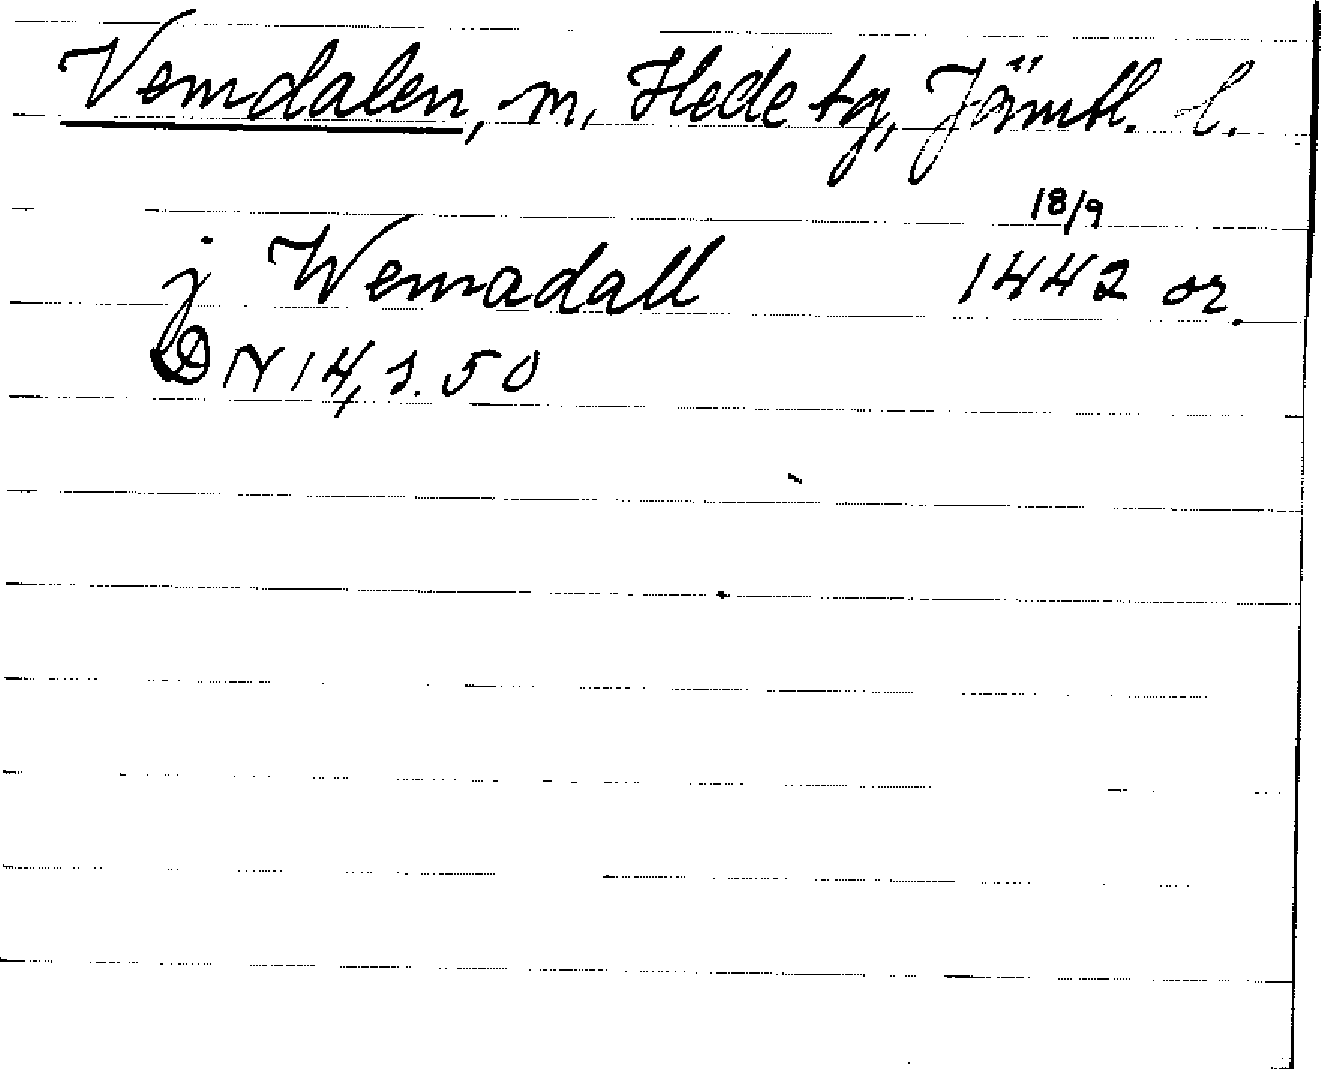 Vemdalen, m, Hede tg, Jämtl. l.
18/9
j Wemadall 1442 or.
DN 14, s. 50